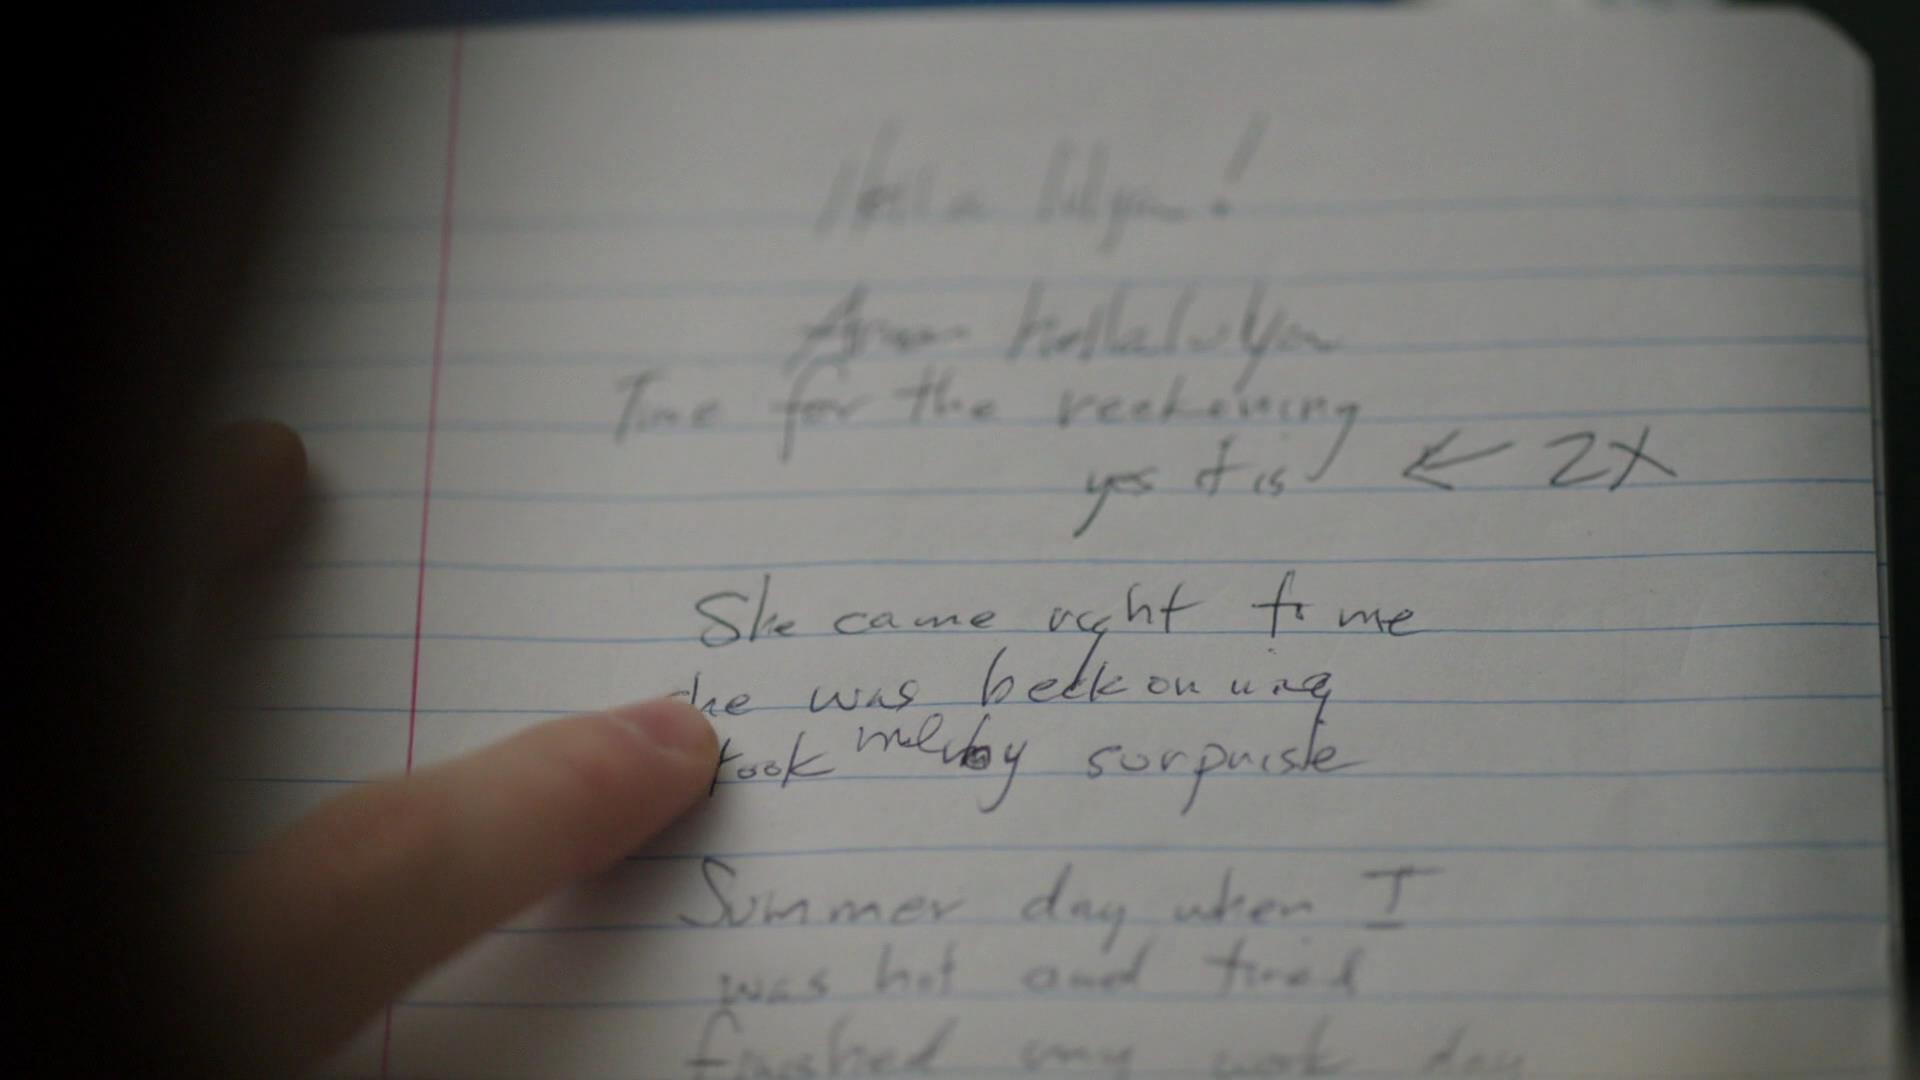 Halle lulya!
Hallelulya
Time for the reckoning
yes it is ← 2X
She came right to me
she was beckoning
took me by surpruise
Summer day when I
was hot and tired
finished my work day